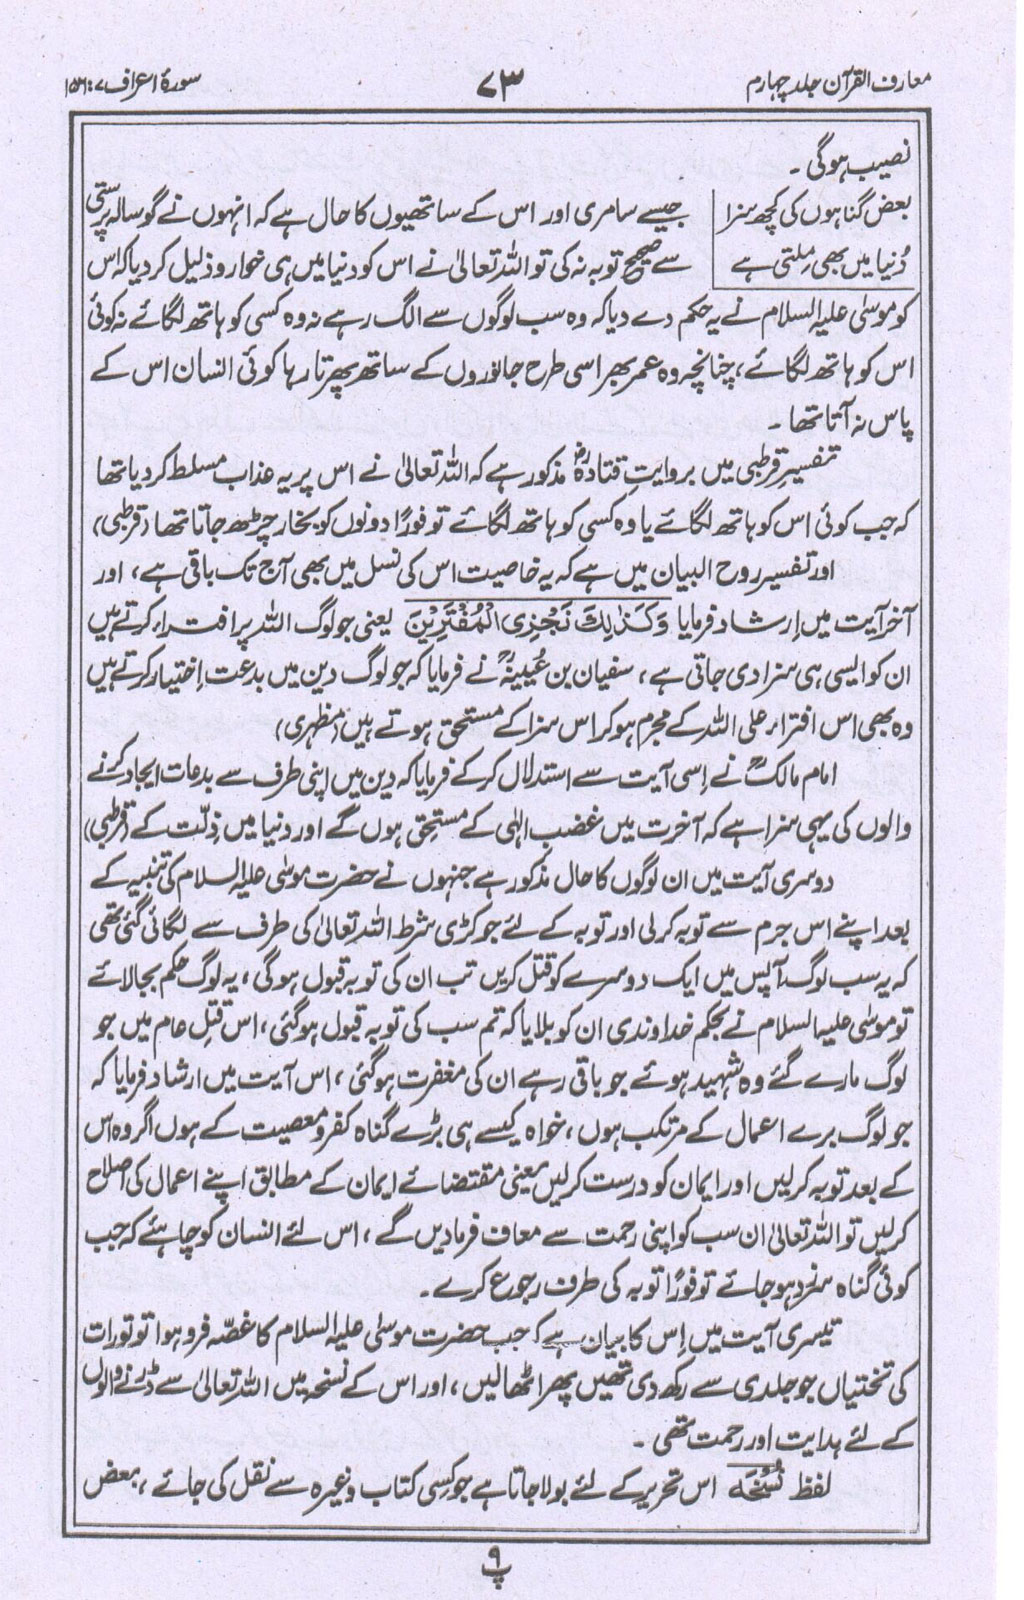 معارف القرآن جلد چہارم
۷۳
سورۂ اعراف ۷: ۱۵۶
نصیب ہوگی ۔
بعض گناہوں کی کچھ سزا
دُنیا میں بھی مِلتی ہے
جیسے سامری اور اس کے ساتھیوں کا حال ہے کہ انہوں نے گوسالہ پرستی
سے صحیح توبہ نہ کی تو اللہ تعالیٰ نے اس کو دنیا میں ہی خوار و ذلیل کر دیا کہ اس
کو موسیٰ علیہ السلام نے یہ حکم دے دیا کہ وہ سب لوگوں سے الگ رہے نہ وہ کسی کو ہاتھ لگائے نہ کوئی
اس کو ہاتھ لگائے، چنانچہ وہ عمر بھر اسی طرح جانوروں کے ساتھ پھرتا رہا کوئی انسان اس کے
پاس نہ آتا تھا ۔
تفسیر قرطبی میں بروایتِ قتادہؒ مذکور ہے کہ اللہ تعالیٰ نے اس پر یہ عذاب مسلط کر دیا تھا
کہ جب کوئی اس کو ہاتھ لگائے یا وہ کسی کو ہاتھ لگائے تو فوراً دونوں کو بخار چڑھ جاتا تھا (قرطبی)
اور تفسیر روح البیان میں ہے کہ یہ خاصیت اس کی نسل میں بھی آج تک باقی ہے، اور
آخر آیت میں اِرشاد فرمایا وَكَذٰلِكَ نَجْزِی الْمُفْتَرِيْنَ یعنی جو لوگ اللہ پر افتراء کرتے ہیں
ان کو ایسی ہی سزا دی جاتی ہے، سفیان بن عُیینہؒ نے فرمایا کہ جو لوگ دین میں بدعت اِختیار کرتے ہیں
وہ بھی اس افتراء علی اللہ کے مجرم ہو کر اس سزا کے مستحق ہوتے ہیں (مظہری)
امام مالکؒ نے اِسی آیت سے استدلال کر کے فرمایا کہ دین میں اپنی طرف سے بدعات ایجاد کرنے
والوں کی یہی سزا ہے کہ آخرت میں غضب الٰہی کے مستحق ہوں گے اور دنیا میں ذِلّت کے (قرطبی)
دوسری آیت میں ان لوگوں کا حال مذکور ہے جنہوں نے حضرت موسیٰ علیہ السلام کی تنبیہ کے
بعد اپنے اس جرم سے توبہ کر لی اور توبہ کے لئے جو کڑی شرط اللہ تعالیٰ کی طرف سے لگائی گئی تھی
کہ یہ سب لوگ آپس میں ایک دوسرے کو قتل کریں تب ان کی توبہ قبول ہوگی، یہ لوگ حکم بجا لائے
تو موسیٰ علیہ السلام نے بحکم خداوندی ان کو بلایا کہ تم سب کی توبہ قبول ہوگئی، اس قتلِ عام میں جو
لوگ مارے گئے وہ شہید ہوئے جو باقی رہے ان کی مغفرت ہوگئی، اس آیت میں ارشاد فرمایا کہ
جو لوگ برے اعمال کے مرتکب ہوں، خواہ کیسے ہی بڑے گناہ کفر و معصیت کے ہوں اگر وہ اس
کے بعد توبہ کرلیں اور ایمان کو درست کرلیں یعنی مقتضائے ایمان کے مطابق اپنے اعمال کی اصلاح
کرلیں تو اللہ تعالیٰ ان سب کو اپنی رحمت سے معاف فرمادیں گے، اس لئے انسان کو چاہئے کہ جب
کوئی گناہ سرزد ہوجائے تو فوراً توبہ کی طرف رجوع کرے ۔
تیسری آیت میں اِس کا بیان ہے کہ جب حضرت موسیٰ علیہ السلام کا غصّہ فرو ہوا تو تورات
کی تختیاں جو جلدی سے رکھ دی تھیں پھر اٹھالیں، اور اس کے نسخہ میں اللہ تعالیٰ سے ڈرنے والوں
کے لئے ہدایت اور رحمت تھی ۔
لفظ نُسْخَہ اس تحریر کے لئے بولا جاتا ہے جو کسی کتاب وغیرہ سے نقل کی جائے، بعض
پ ۹